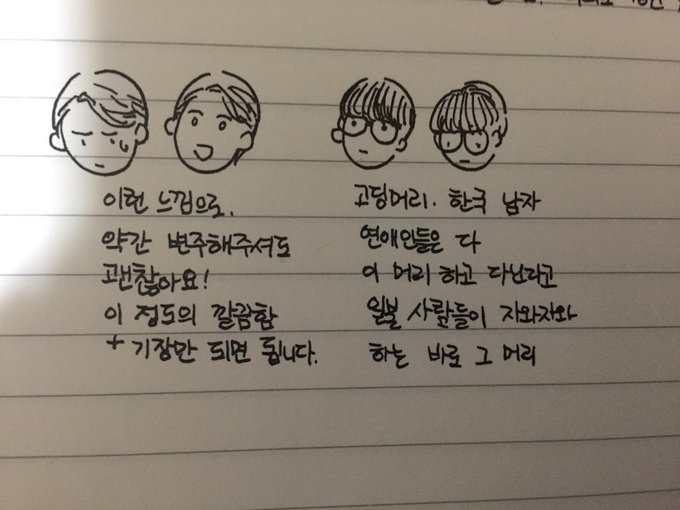 이런 느낌으로,
약간 변주해주셔도
괜찮아요!
이 정도의 깔끔함
+ 기장만 되면 됩니다.
고딩머리. 한국 남자
연애인들은 다
이 머리 하고 다닌다고
일본 사람들이 자와자와
하는 바로 그 머리